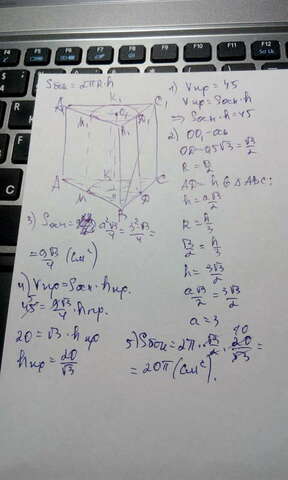 Sбок = 2πR·h
1) Vпр = 45
Vпр = Sосн·h
⇒ Sосн·h = 45
2) OO₁ - ось
R = √3/2
AD = h в △ABC:
h = a√3/2
R = h/3
√3/2 = h/3
h = 3√3/2
a√3/2 = 3√3/2
a = 3
K₁
A₁
C₁
O₁
B₁
A
C
K
M
B
D
3) Sосн = a²√3/4 = 3²√3/4 =
= 9√3/4 (см²)
4) Vпр = Sосн·hпр.
45 = 9√3/4·hпр.
20 = √3·hпр
hпр = 20/√3
5) Sбок = 2π·√3/2·20/√3 =
= 20π (см²).